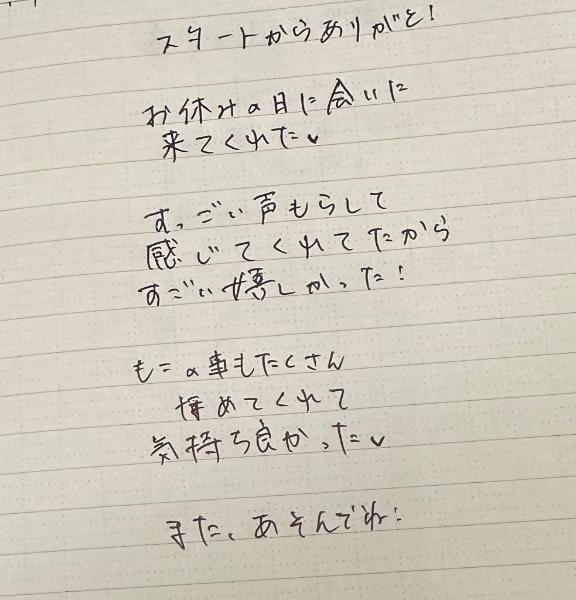 スタートからありがと!
お休みの日に会いに
来てくれた♥
すっごい声もらして
感じてくれてたから
すごい嬉しかった!
もこの事もたくさん
てくれて
気持ち良かった♥
また、あそんでね!